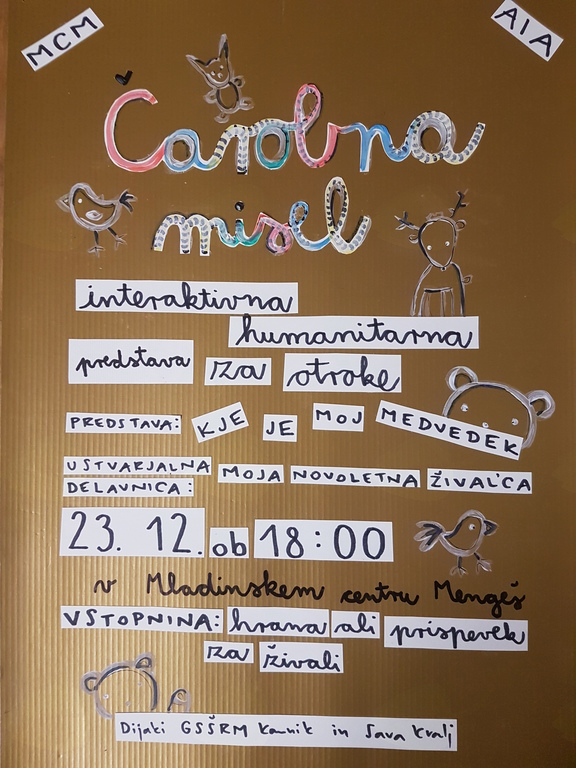 MCM
AIA
Čarobna
misel
interaktivna
humanitarna
predstava za otroke
PREDSTAVA: KJE JE MOJ MEDVEDEK
USTVARJALNA MOJA NOVOLETNA ŽIVAL'CA
DELAVNICA:
23. 12. ob 18:00
v Mladinskem centru Mengeš
VSTOPNINA: hrana ali prispevek
za živali
Dijaki GSŠRM Kamnik in Sava Kralj